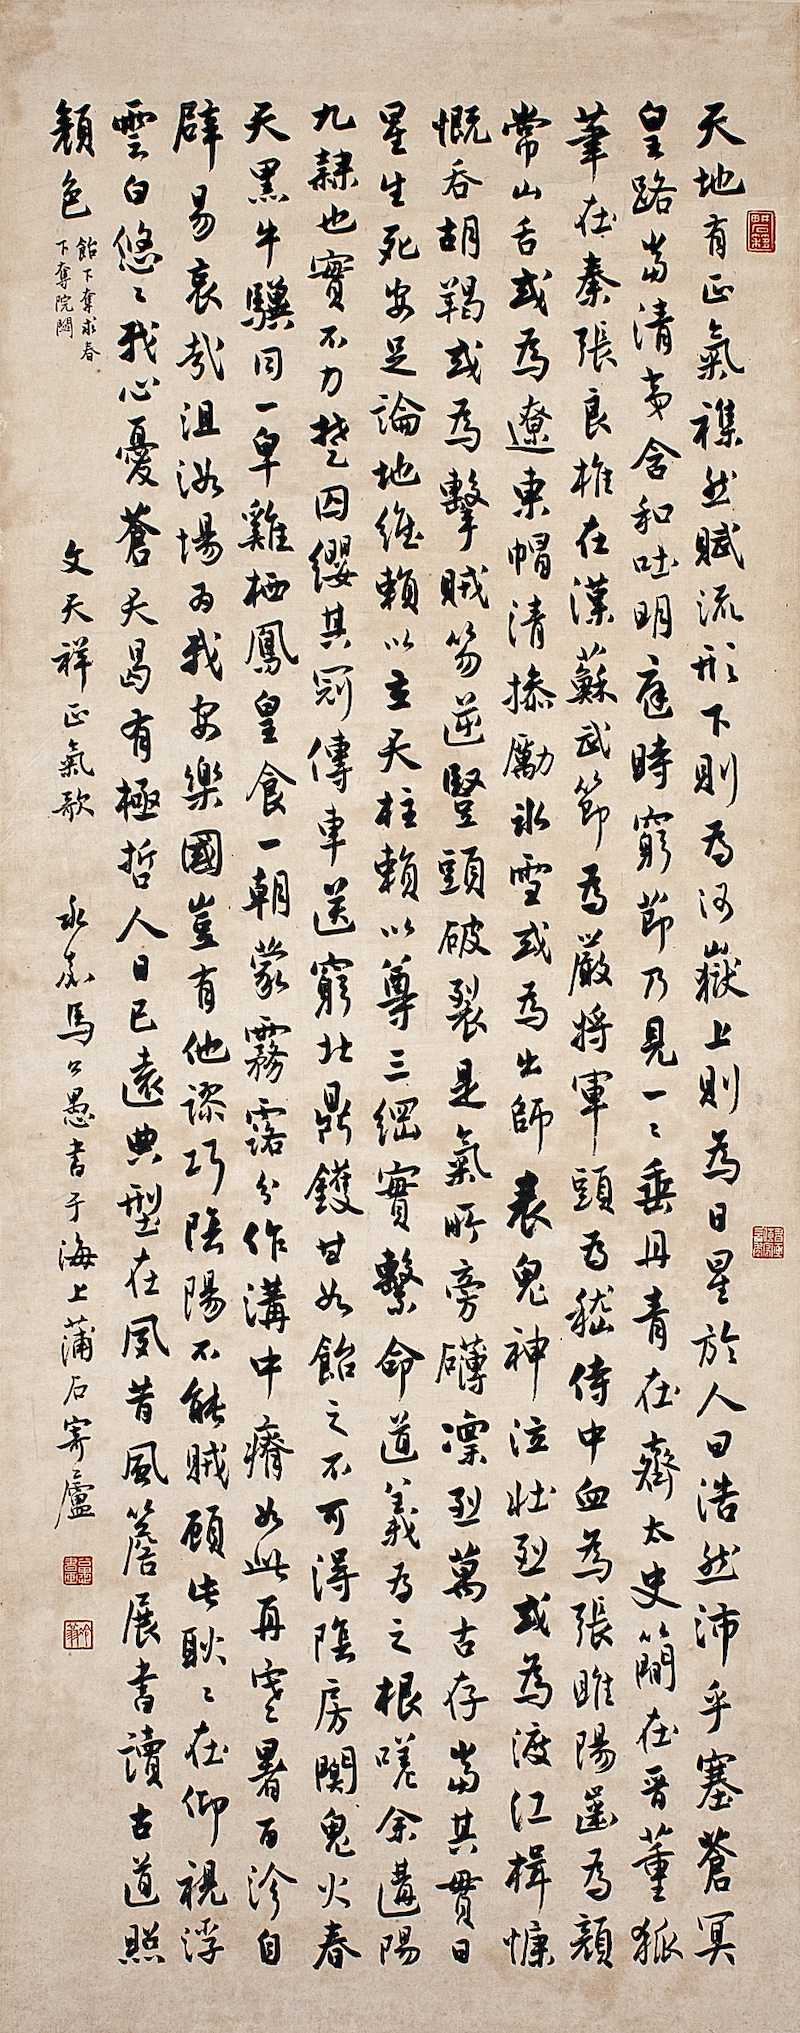 天地有正氣襍然賦流形下則為河嶽上則為日星於人曰浩然沛乎塞蒼冥
皇路當清夷含和吐明庭時窮節乃見一〻垂丹青在齊太史簡在晉董狐
筆在秦張良椎在漢蘇武節為嚴將軍頭為嵇侍中血為張睢陽齒為顏
常山舌或為遼東帽清操勵冰雪或為出師表鬼神泣壯烈或為渡江楫慷
慨吞胡羯或為擊賊笏逆豎頭破裂是氣所旁礴凜烈萬古存當其貫日
星生死安足論地維賴以立天柱賴以尊三綱實繫命道義為之根嗟余遘陽
九隸也實不力楚囚纓其冠傳車送窮北鼎鑊甘如飴之不可得陰房闃鬼火春
天黑牛驥同一皁雞栖鳳皇食一朝蒙霧露分作溝中瘠如此再寒暑百沴自
辟易哀哉沮洳場為我安樂國豈有他謬巧陰陽不能賊顧此耿〻在仰視浮
雲白悠〻我心憂蒼天曷有極哲人日已遠典型在夙昔風簷展書讀古道照
顏色
飴下奪求春
下奪院閟
文天祥正氣歌
永嘉馬公愚書于海上蒲石寄廬